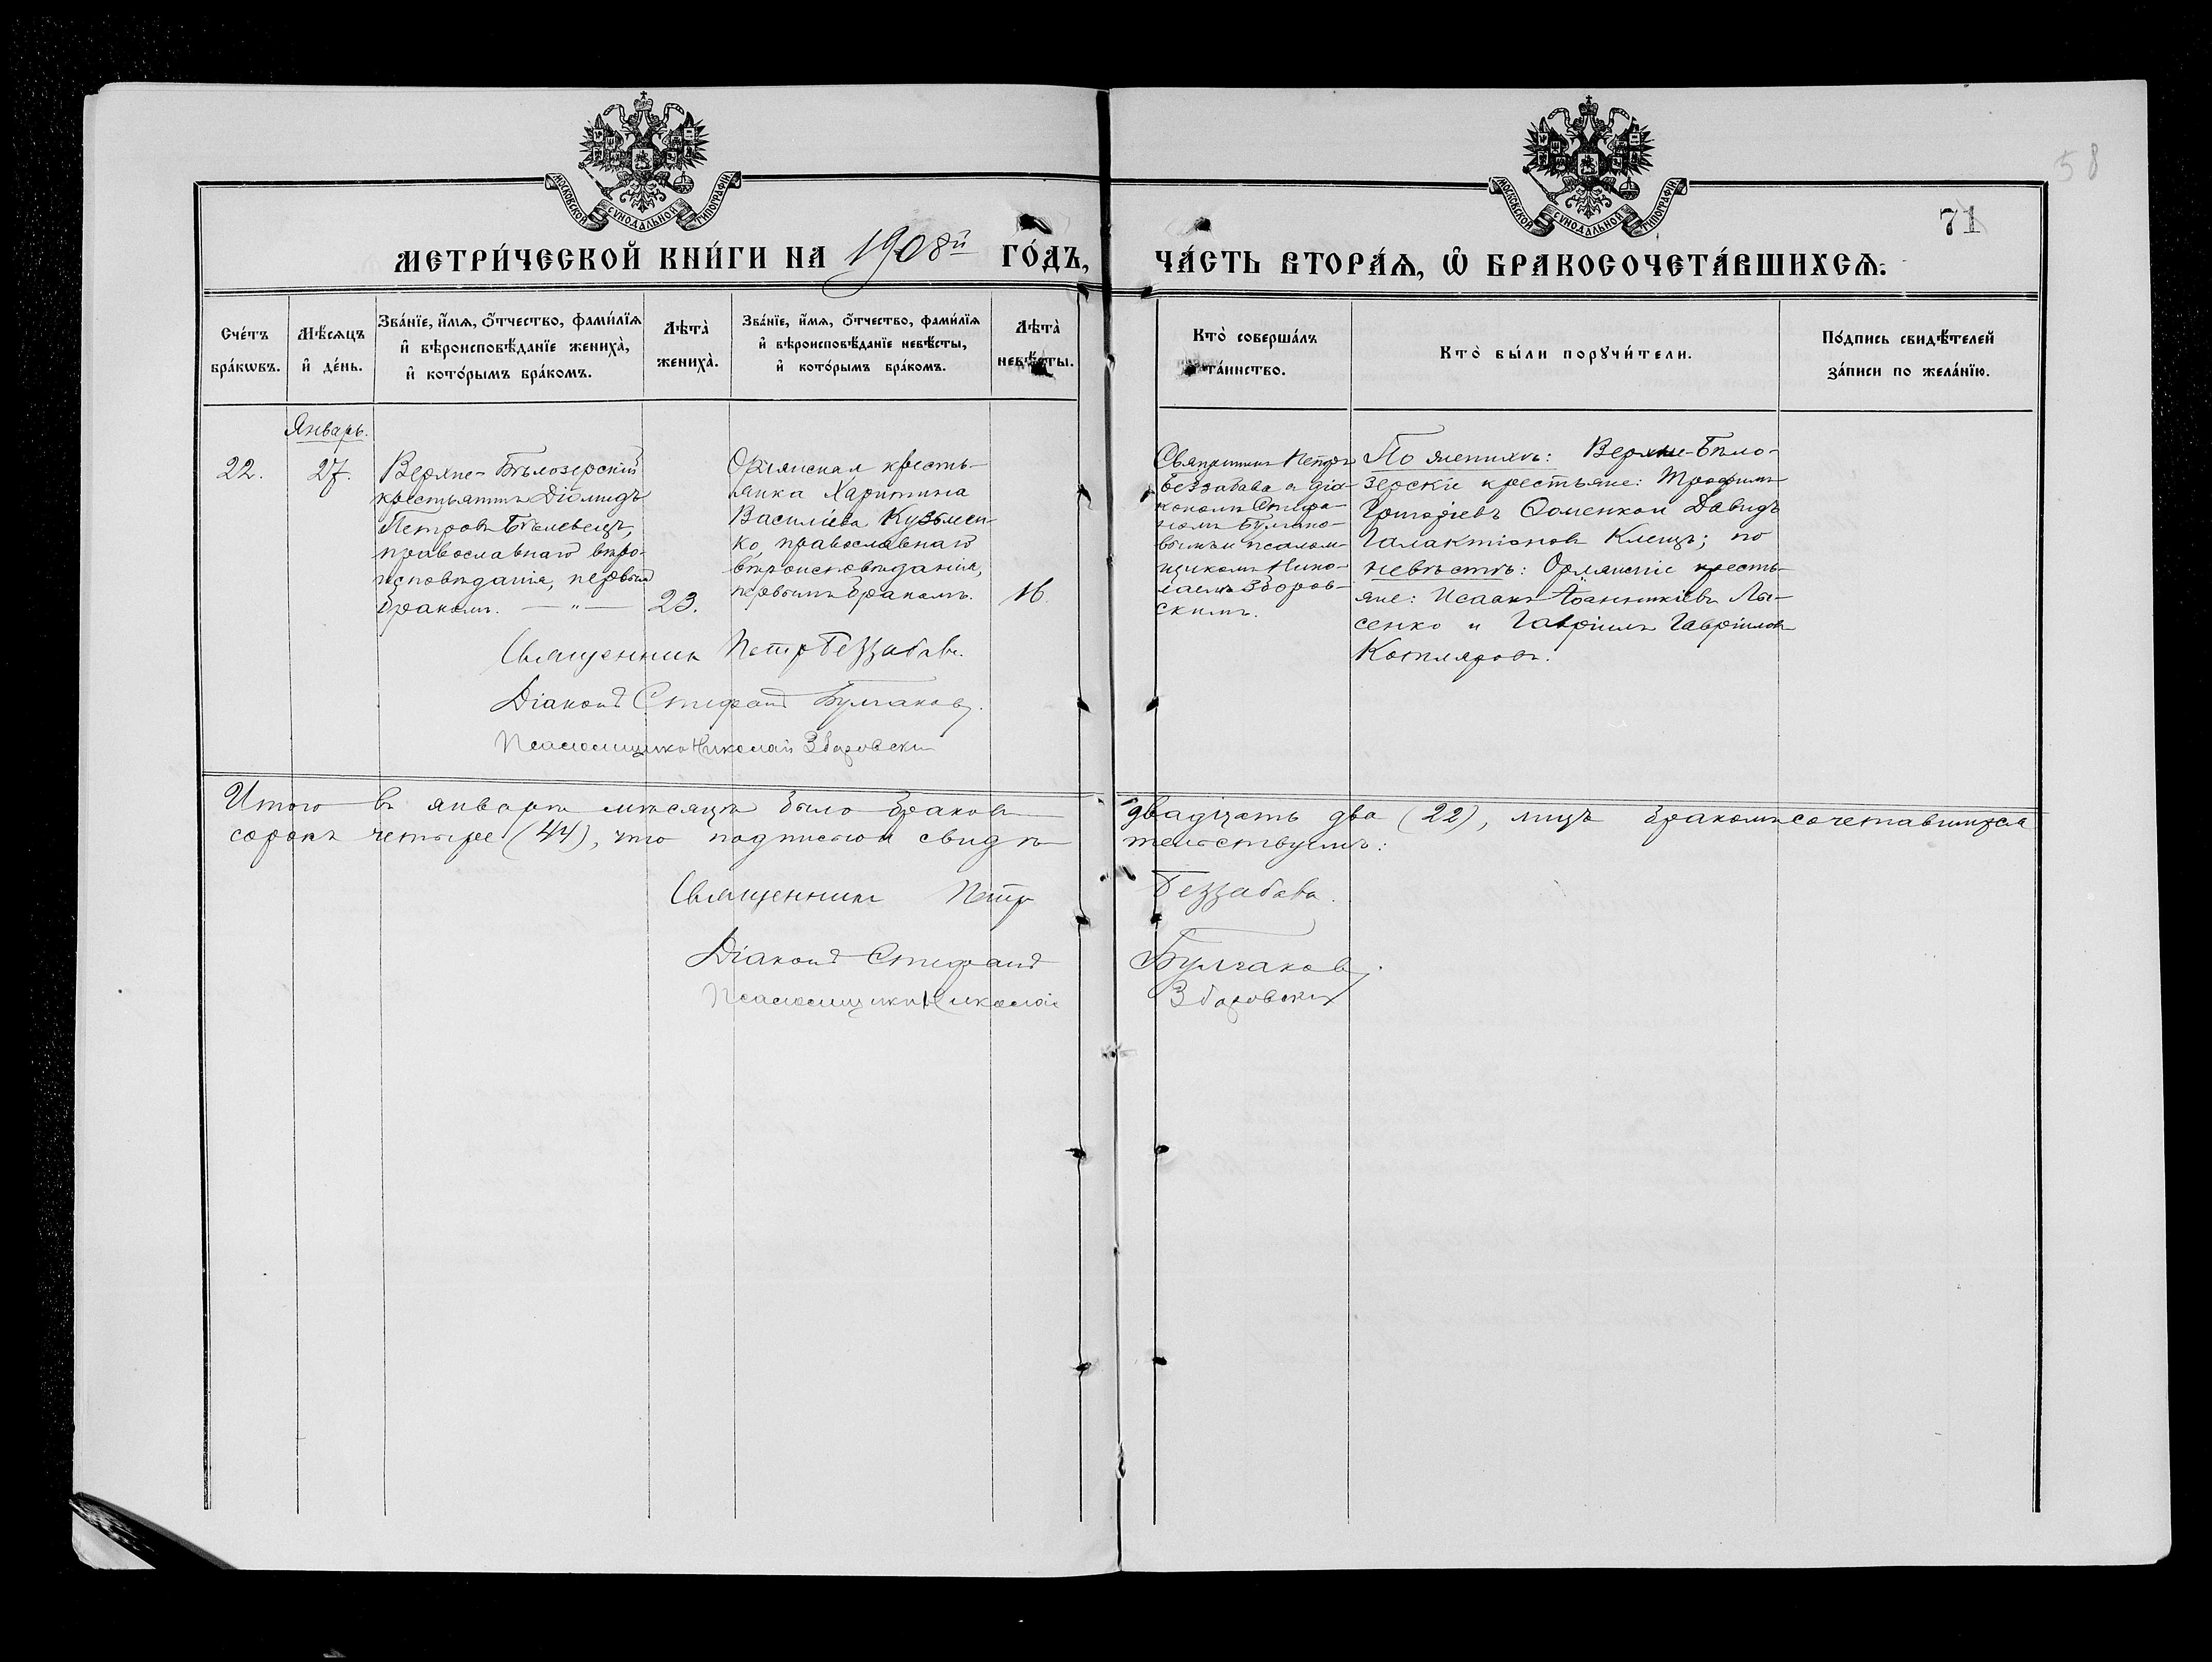 58
71
МОСКОВСКОЙ СѴНОДАЛЬНОЙ ТИПОГРАФІИ
МОСКОВСКОЙ СѴНОДАЛЬНОЙ ТИПОГРАФІИ
МЕТРИ́ЧЕСКОЙ КНИ́ГИ НА 1908й ГО́ДЪ,
ЧА́СТЬ ВТОРА́Ѧ, Ѽ БРАКОСОЧЕТА́ВШИХСѦ.
Сче́тъ
бра́кѡвъ.
Мѣ́сѧцъ
и҆ де́нь.
Зва́нїе, и҆́мѧ, ѻ҆́тчество, фами́лїѧ
и҆ вѣроисповѣ́данїе жениха̀,
и҆ кото́рымъ бра́комъ.
Лѣта̀
жениха̀.
Зва́нїе, и҆́мѧ, ѻ҆́тчество, фами́лїѧ
и҆ вѣроисповѣ́данїе невѣ́сты,
и҆ кото́рымъ бра́комъ.
Лѣта̀
невѣ́сты.
Кто̀ соверша́лъ
та́инство.
Кто̀ бы́ли порꙋчи́тели.
По́дпись свидѣ́телей
за́писи по жела́нїю.
Январь.
22.
27.
Верхне-Бѣлозерскій
крестьянинъ Діомидъ
Петровъ Бѣлевецъ,
православнаго вѣро-
исповѣданія, первымъ
бракомъ. — " —
23.
Орлянская кресть-
янка Харитина
Василіева Кузьмен-
ко, православнаго
вѣроисповѣданія,
первымъ бракомъ.
16.
Священникъ Петръ
Беззабава съ діа-
кономъ Стефа-
номъ Булгако-
вымъ и псалом-
щикомъ Нико-
лаемъ Зборов-
скимъ.
По женихѣ: Верхне-Бѣло-
зерскіе крестьяне: Трофимъ
Григоріевъ Соменко и Давидъ
Галактіоновъ Клещъ; по
невѣстѣ: Орлянскіе кресть-
яне: Исаакъ Іоанникіевъ Лы-
сенко и Гавріилъ Гавріиловъ
Котляровъ.
Священникъ Петръ Беззабава.
Діаконъ Стефанъ Булгаковъ.
Псаломщикъ Николай Зборовскій
Итого въ январѣ мѣсяцѣ было браковъ двадцать два (22), лицъ бракомъ сочетавшихся
сорокъ четыре (44), что подписью и свидѣтельствуемъ:
Священникъ Петръ Беззабава.
Діаконъ Стефанъ Булгаковъ.
Псаломщикъ Николай Зборовскій